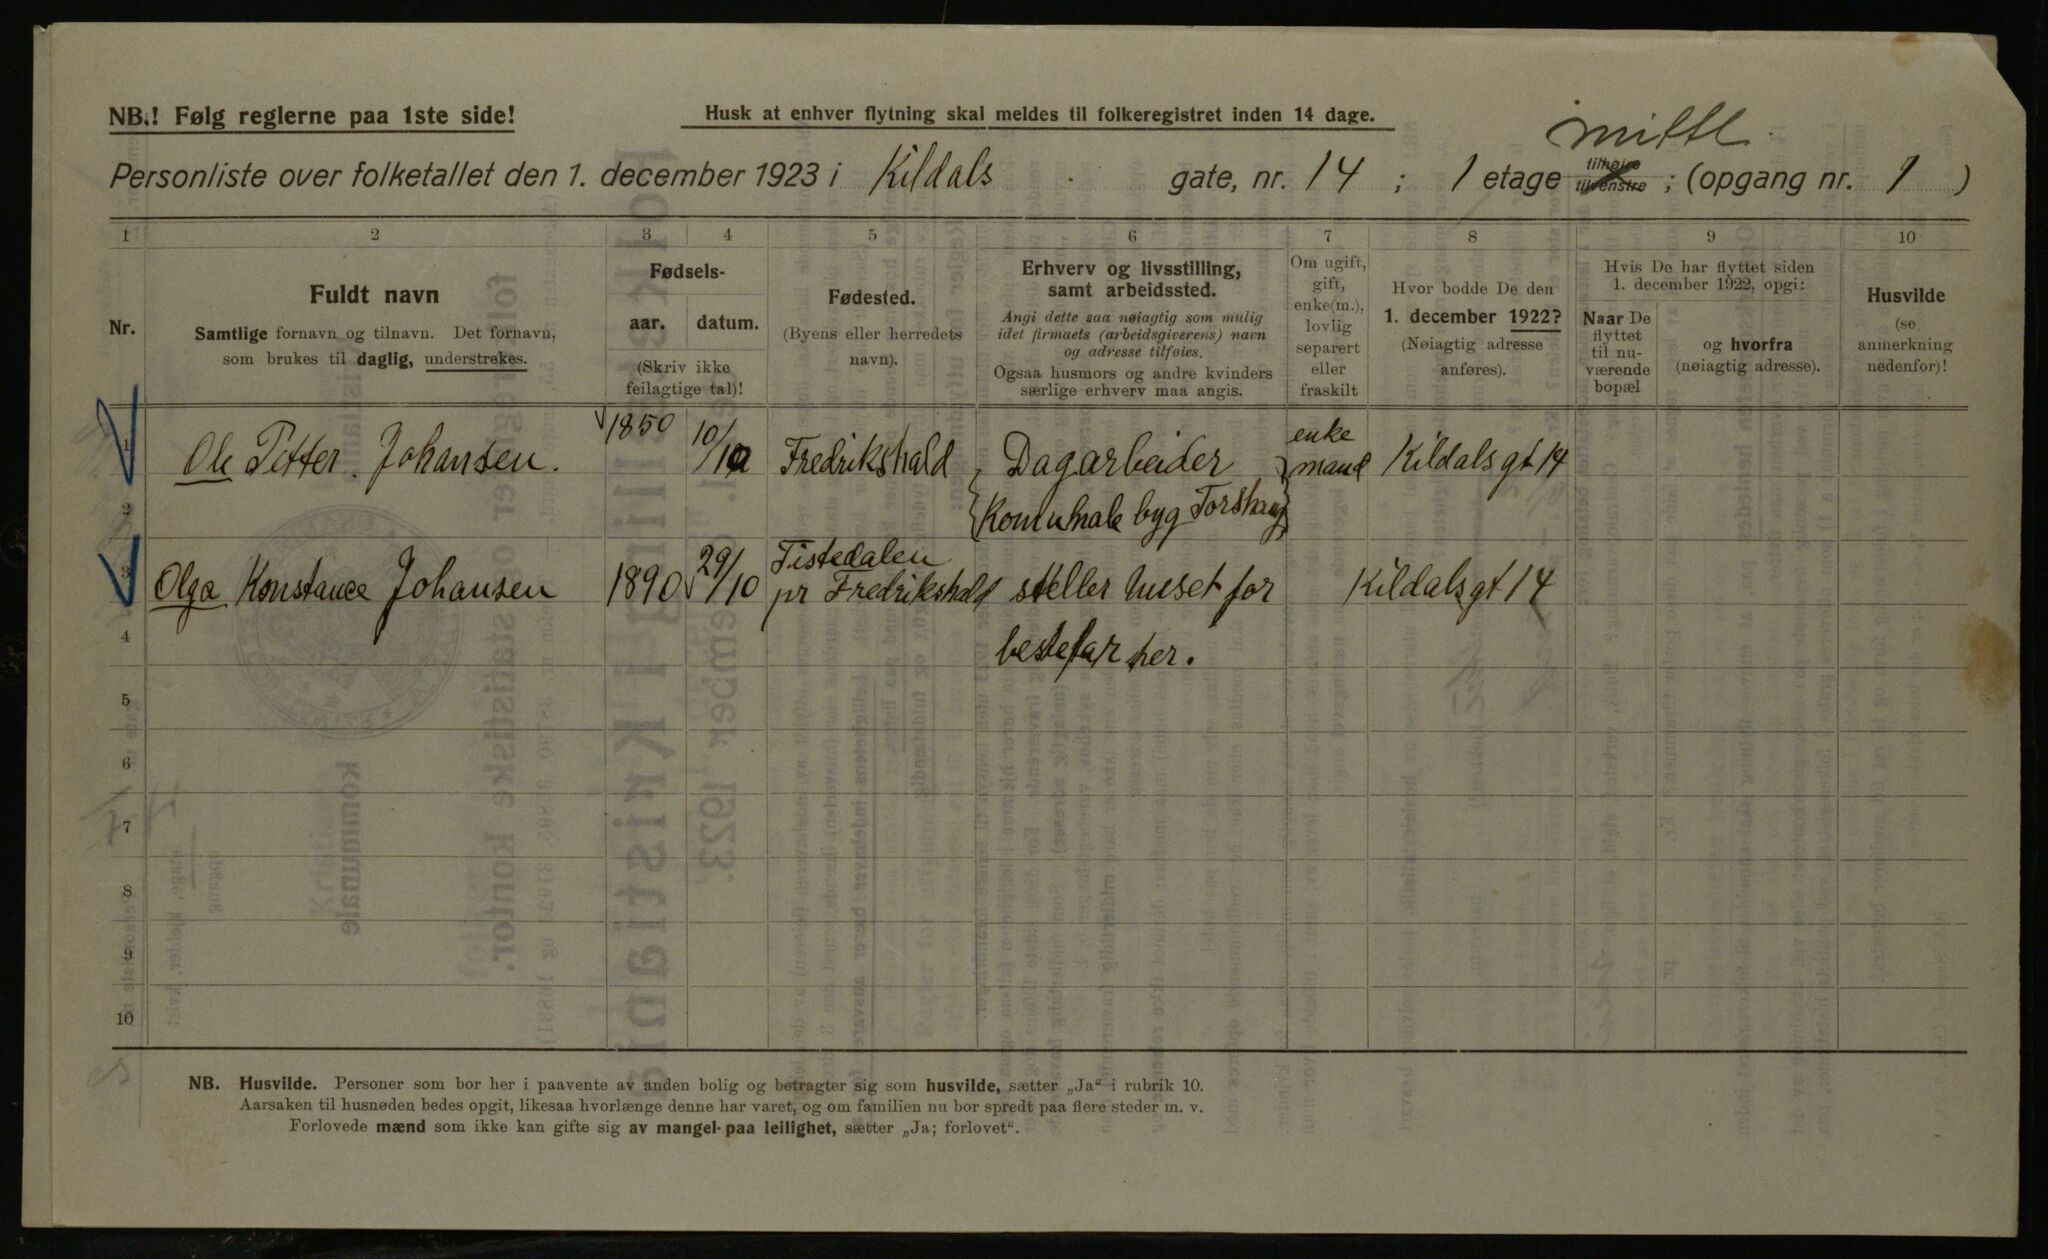 NB.! Følg reglerne paa 1ste side!
Husk at enhver flytning skal meldes til folkeregistret inden 14 dage.
mitte
Personliste over folketallet den 1. december 1923 i Kildals gate, nr. 14 ; 1 etage tilhøire tilvenstre ; (opgang nr. 1 )
1 2 3 4 5 6 7 8 9 10
Nr.
Fuldt navn
Samtlige fornavn og tilnavn. Det fornavn,
som brukes til daglig, understrekes.
Fødsels-
aar. datum.
(Skriv ikke
feilagtige tal)!
Fødested.
(Byens eller herredets
navn).
Erhverv og livsstilling,
samt arbeidssted.
Angi dette saa nøiagtig som mulig
idet firmaets (arbeidsgiverens) navn
og adresse tilføies.
Ogsaa husmors og andre kvinders
særlige erhverv maa angis.
Om ugift,
gift,
enke(m.),
lovlig
separert
eller
fraskilt
Hvor bodde De den
1. december 1922?
(Nøiagtig adresse
anføres).
Hvis De har flyttet siden
1. december 1922, opgi:
Naar De
flyttet
til nu-
værende
bopæl
og hvorfra
(nøiagtig adresse).
Husvilde
(se
anmerkning
nedenfor)!
1 Ole Petter Johansen. 1850 10/10 Fredrikshald Dagarbeider enke mand Kildalsgt 14
2 Komunale byg
3 Olga Konstance Johansen 1890 29/10 Tistedalen pr Fredrikshald steller huset for Kildalsgt 14
4 bestefar her.
5
6
7
8
9
10
NB. Husvilde. Personer som bor her i paavente av anden bolig og betragter sig som husvilde, sætter „Ja“ i rubrik 10.
Aarsaken til husnøden bedes opgit, likesaa hvorlænge denne har varet, og om familien nu bor spredt paa flere steder m. v.
Forlovede mænd som ikke kan gifte sig av mangel paa leilighet, sætter „Ja; forlovet“.